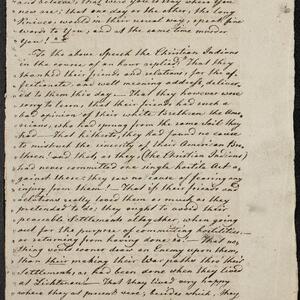 and believe, that were you to stay where you
now are; that one day or the other, the long
Knives, would in their usual way, speak fine
words to You, and at the same time murder
You!
To the above Speech the Christian Indians
in the course of an hour replied; That they
thanked their friends and relations, for the af-
fectionate and well meaning address, deliver-
ed to them this day. — That they however were
sorry to learn, that their friends had such a
bad opinion of their white Brethren the Ame-
ricans, who had sprung from the same Soil they
had — That hitherto, they had found no cause
to mistrust the sincerity of their American Bre-
thren! and that, as they (the Christian Indians)
had never committed one single hostile Act a-
gainst them; they saw no cause of fearing any
injury from them! — That if their friends and
relations really loved them as much as they
pretended to do; they ought to avoid their
peaceable Settlements altogether, when going
out for the purpose of committing hostilities
or returning from having done so: — That no
thing would sooner draw an Enemy upon them,
than their making their War paths thro their
Settlements, as had been done when they lived
at Lichtenau — That they lived very happy
where they at present were; besides which, they